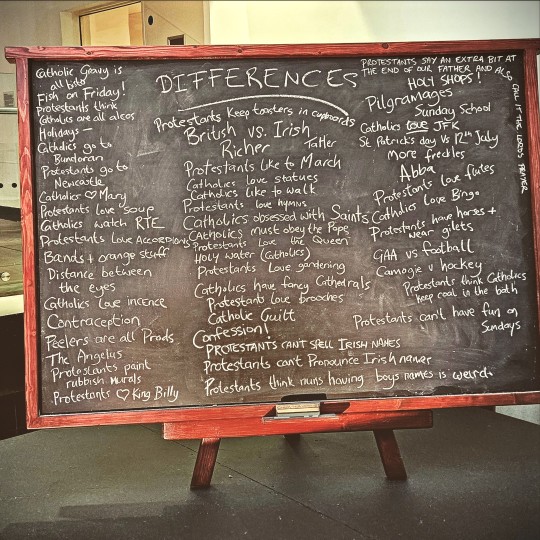 DIFFERENCES
Catholic Gravy is
all bisto
Fish on Friday!
Protestants think
Catholics are all alcos
Holidays —
Catholics go to
Bundoran
Protestants go to
Newcastle
Catholics ♡ Mary
Protestants love soup
Catholics watch RTE
Protestants Love Accordions
Bands + orange stuff
Distance between
the eyes
Catholics love incence
Contraception
Peelers are all Prods
The Angelus
Protestants paint
rubbish murals
Protestants ♡ King Billy
Protestants Keep toasters in cupboards
British vs. Irish
Richer Taller
Protestants like to March
Catholics love statues
Catholics like to walk
Protestants love hymns
Catholics obsessed with Saints
Catholics must obey the Pope
Protestants love the Queen
Holy water (Catholics)
Protestants Love gardening
Catholics have fancy Cathedrals
Protestants love brooches
Catholic Guilt
Confession!
PROTESTANTS CAN'T SPELL IRISH NAMES
Protestants can't Pronounce Irish names
Protestants think nuns having boys names is weird.
PROTESTANTS SAY AN EXTRA BIT AT
THE END OF OUR FATHER AND ALSO
CALL IT THE LORDS PRAYER
HOLY SHOPS!
Pilgramages
Sunday School
Catholics love JFK
St Patricks day Vs 12th July
More freckles
Abba
Protestants love flutes
Catholics love Bingo
Protestants have horses +
wear gilets
GAA vs football
Camogie v hockey
Protestants think Catholics
keep coal in the bath
Protestants can't have fun on
Sundays